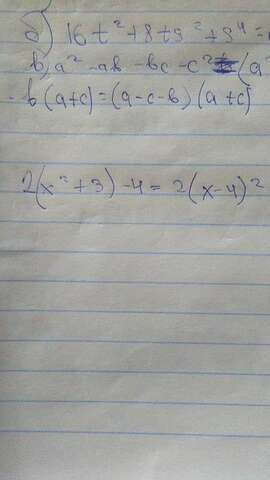 б) 16t² + 8ts² + s⁴ =
в) a² - ab - bc - c² = (a²
- b(a+c) = (a-c-b)(a+c)
2(x² + 3) - 4 = 2(x-4)²